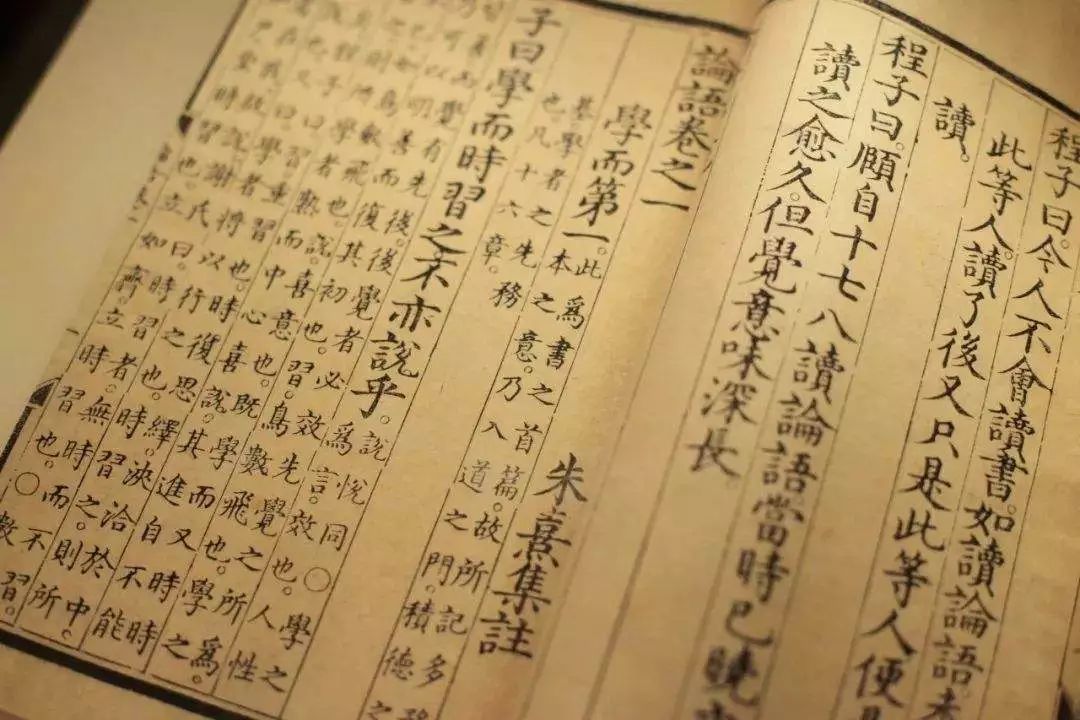 程子曰。今人不會讀書。如讀論語
此等人。讀了後又只是此等人便
讀。
程子曰。頤自十七八讀論語當時已曉
讀之愈久。但覺意味深長
論語卷之一
朱熹集註
學而第一。
此為書之首篇。故所記多
本之意。乃入道之門。積德之
基學者之先務
也凡十六章。
子曰學而時習之不亦說乎。
說悅同○學之
為言效也。人性
善而覺有先後。後覺者必效先覺之所為。
乃可以明善而復其初也。習鳥數飛也。學之
已。如鳥數飛也。說喜意也。既學而又時時
則所學者熟而中心喜說其進自不能
子曰。習重習也。時復思繹。浹洽於中。
也。又曰。學者將以行之也。時習之。則所
在我。故說。謝氏曰。時習者。無時而不習。
尸坐時習也。立如齊。立時習也。○